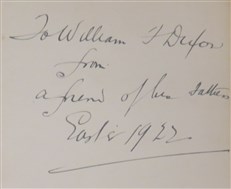 To William F Dixon
from
a friend of his Father
Easter 1922